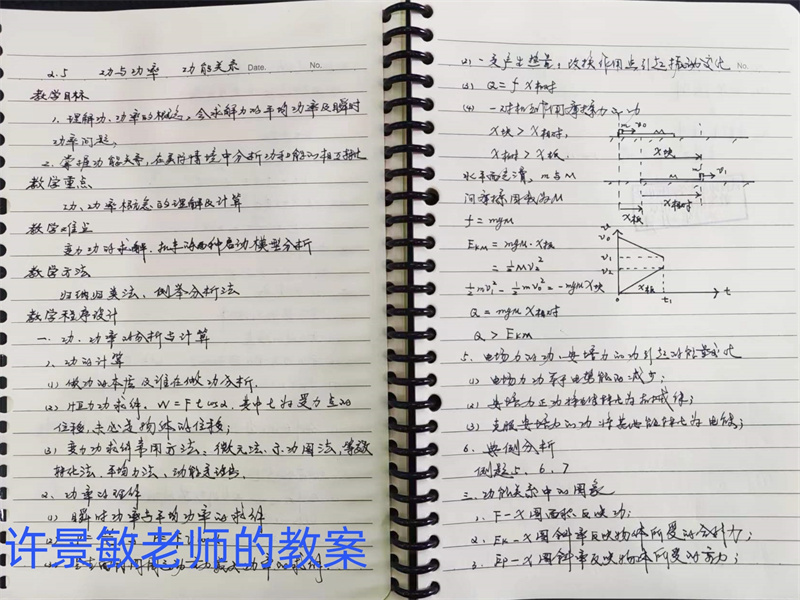 2.5 功与功率 功能关系 Date. No.
教学目标
1. 理解功、功率的概念，会求解力的平均功率及瞬时
功率问题。
2. 掌握功能关系，在实际情境中分析功和能的相互转化
教学重点
功、功率概念的理解及计算
教学难点
变力功的求解、机车的两种启动模型分析
教学方法
归纳归类法、例举分析法
教学程序设计
一. 功、功率的分析与计算
1、功的计算
(1) 做功的本质及谁在做功分析.
(2) 恒力功求解. W=Flcosα, 其中l为受力点的
位移,未必是物体的位移;
(3) 变力功求解常用方法: 微元法、示功图法、等效
转化法、平均力法、动能定理.
2、功率的理解
(1) 瞬时功率与平均功率的求解
许景敏老师的教案
(2) 一定产生热量; No.
(3) Q=fX相对
(4) 一对相互作用摩擦力的功
X块>X相对,
X相对>X板.
水平面光滑, m与M
间摩擦因数为μ
f=mgμ
EKM=mgμ·X板
=½MV₂²
½mv₁²-½mv₀²=-mgμX块
Q=mgμX相对
Q>EKM
m v₀ M
X块
v₁
X相对
X板
v
v₀
v₁
v₂
0 X板 t₁ t
5. 电场力的功、安培力的功引起的能量变化
(1) 电场力功等于电势能的减少;
(2) 安培力正功将电能转化为机械能;
(3) 克服安培力的功将其他能转化为电能;
6. 典例分析
例题5、6、7
三.功能关系中的图象
1. F-X图面积反映功;
2. Ek-X图斜率反映物体所受的合外力;
3. Ep-X图斜率反映物体所受的场力;